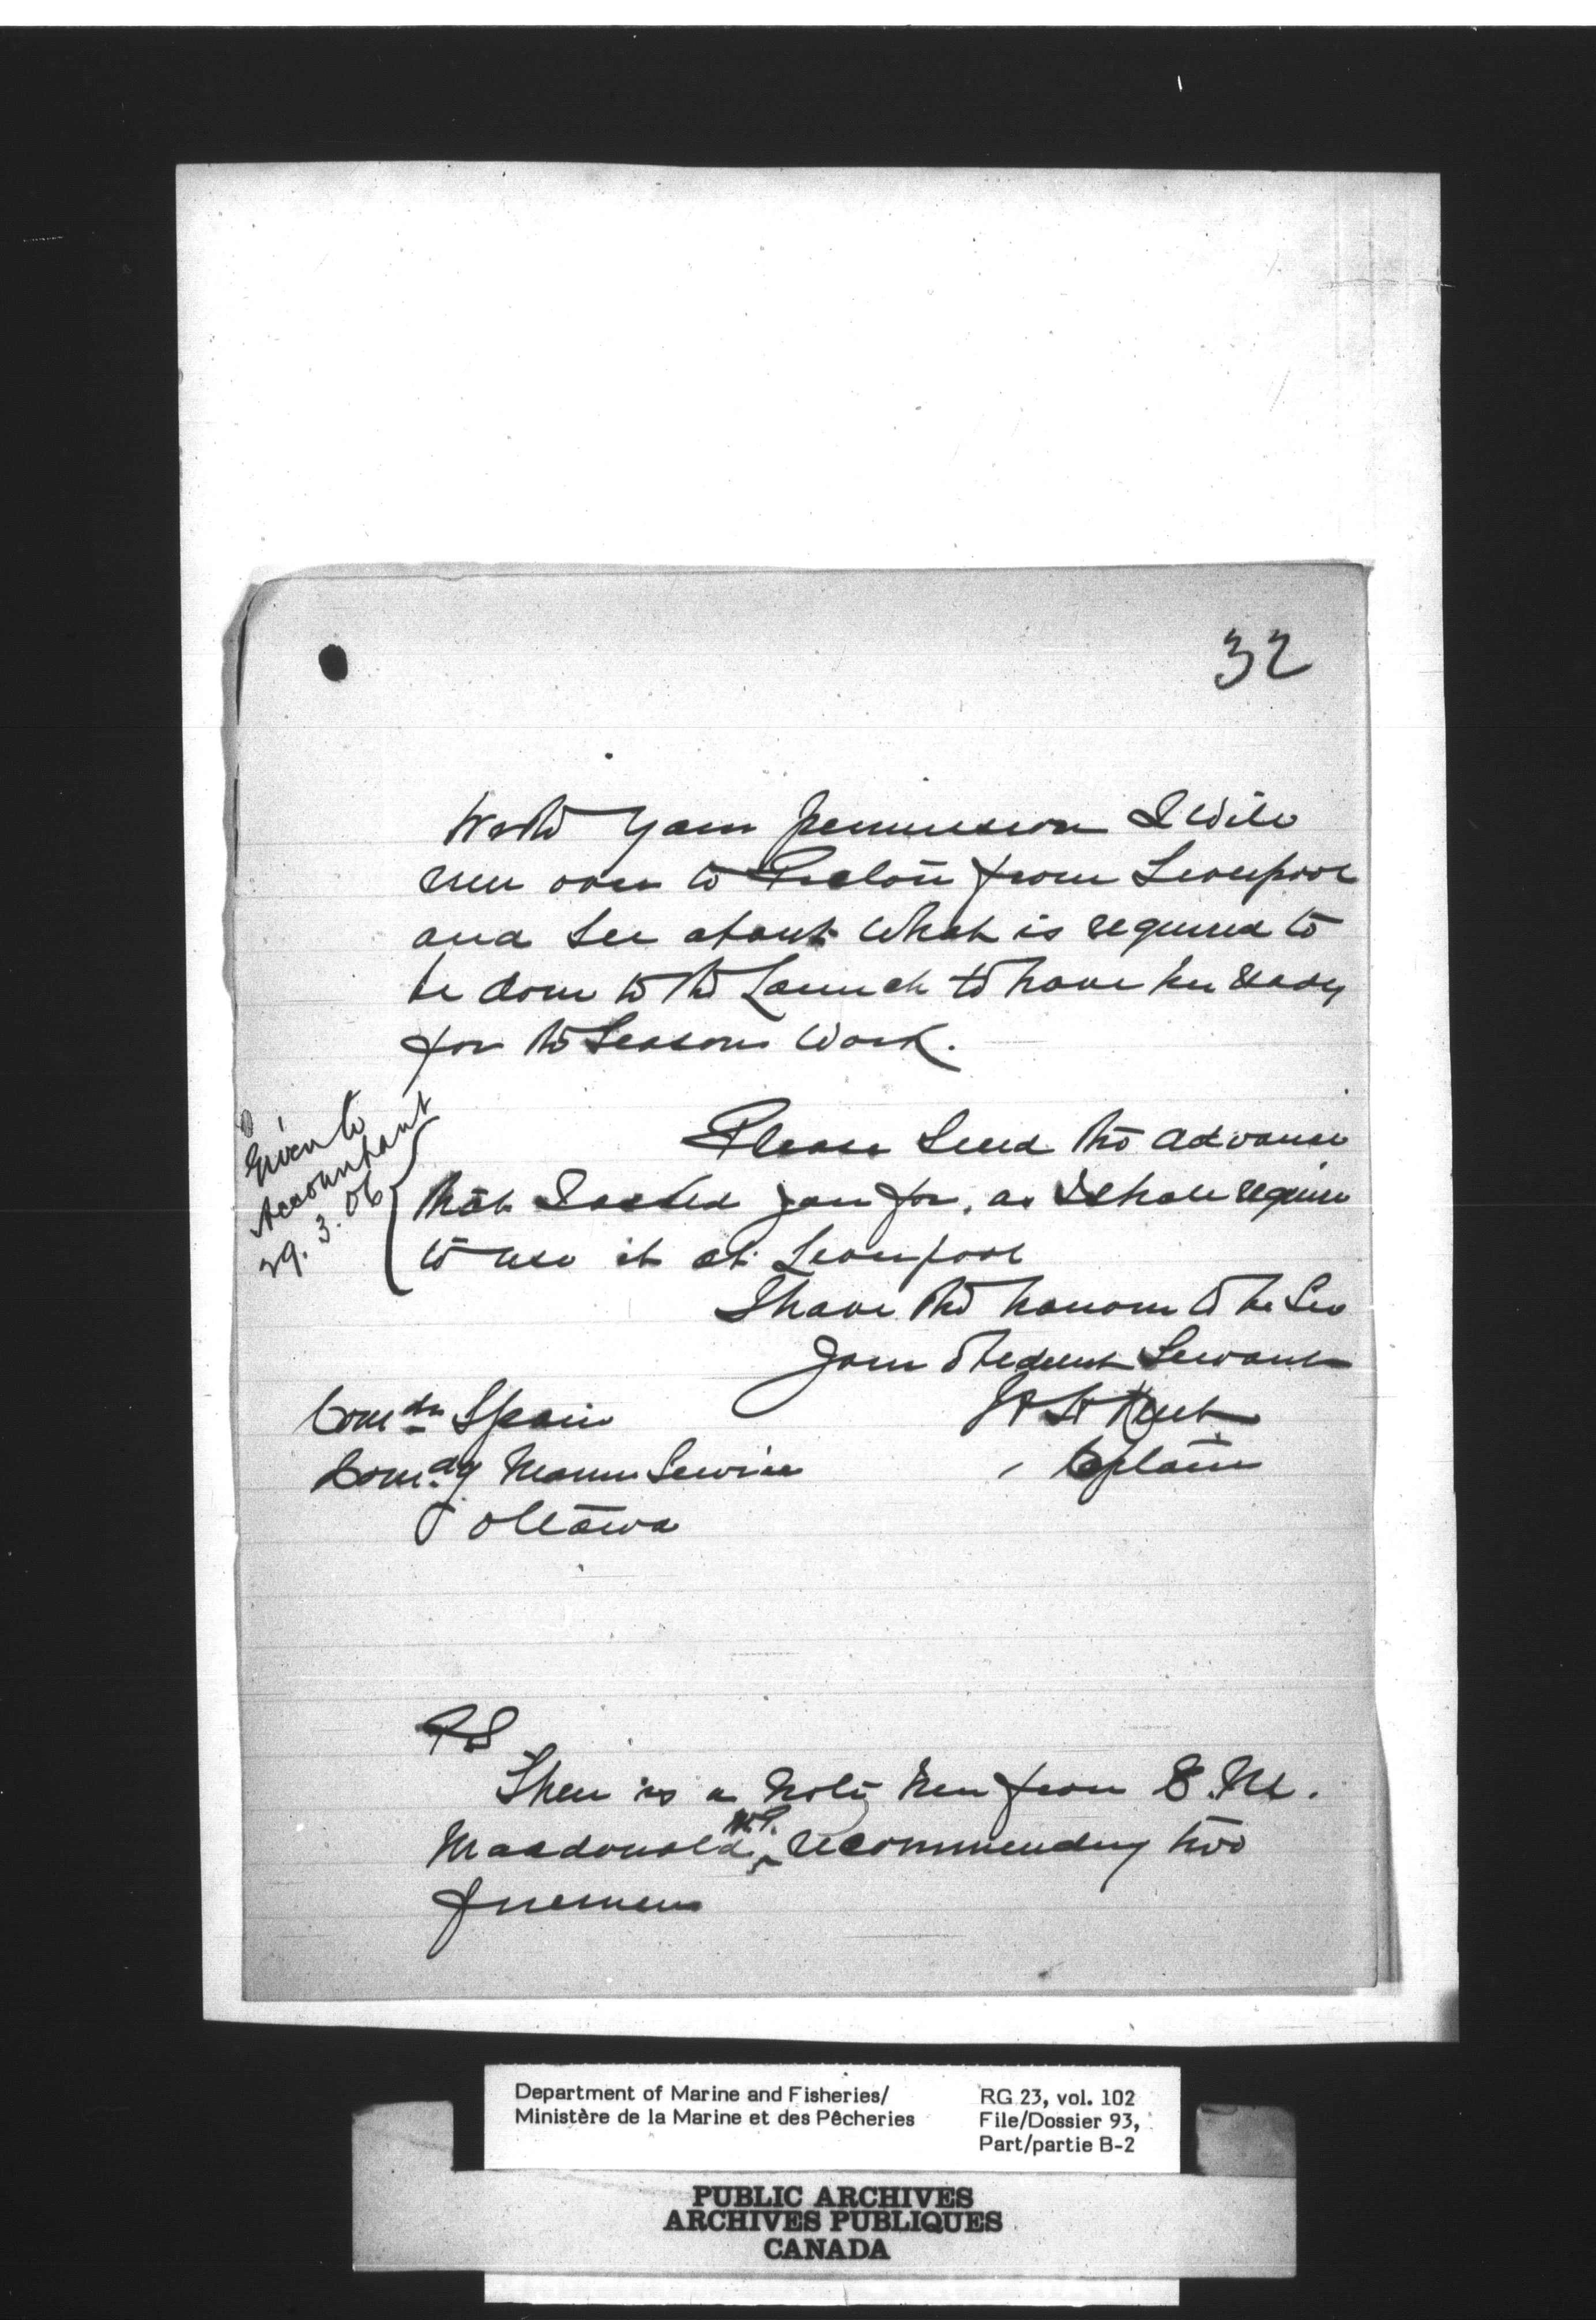 32
With your permission I will
run over to Pictou from Liverpool
and see about what is required to
be done to the Launch to have her ready
for the Seasons Work.
Given to
Accountant
29.3.06
Please Send the advance
that I asked you for, as I shall require
to use it at Liverpool
I have the honour to be Sir
Your Obedient Servant
Kent
Captain
Comdr Spain
Comdg Marine Service
Ottawa
PS
There is a note here from E. M.
Macdonald M.P. recommending two
firemen
Department of Marine and Fisheries/
Ministère de la Marine et des Pêcheries
RG 23, vol. 102
File/Dossier 93,
Part/partie B-2
PUBLIC ARCHIVES
ARCHIVES PUBLIQUES
CANADA